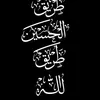 طريق
الحسين
طريق
الله